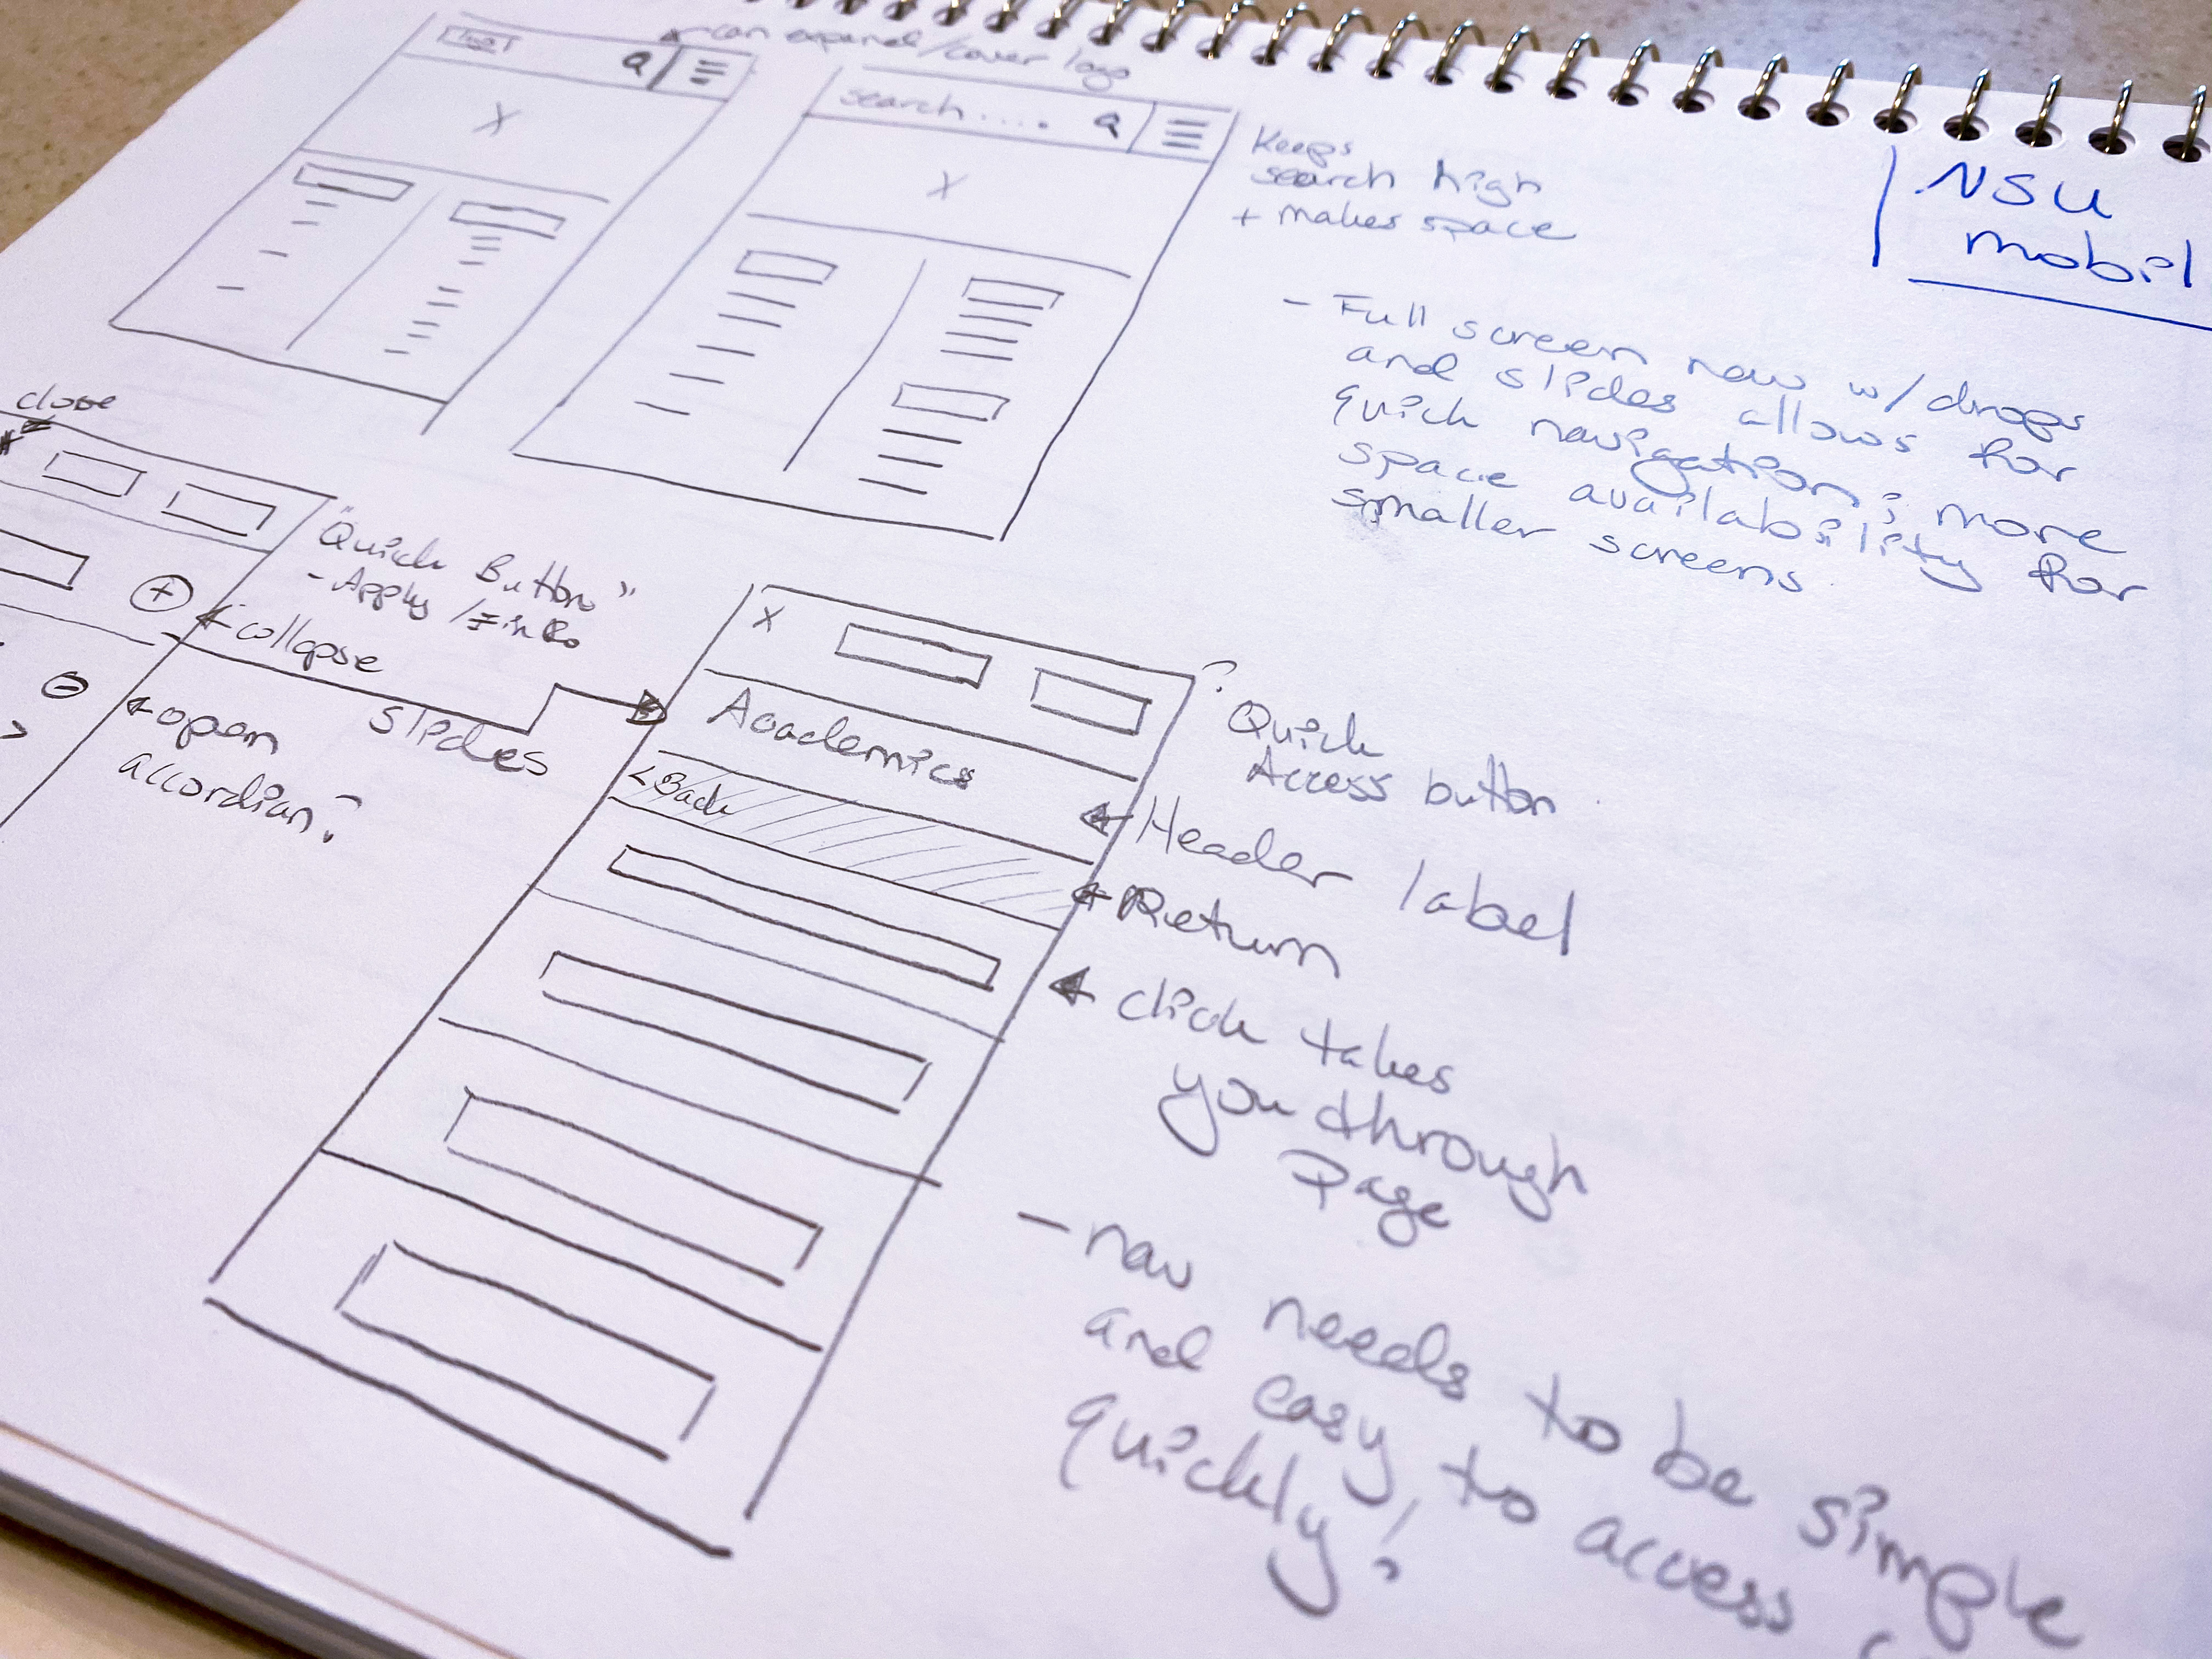 logo
can expand/cover logo
search.....
Keeps
search high
+ makes space
NSU
mobil
- Full screen nav w/drops
and slides allows for
quick navigation; more
space availability for
smaller screens
close
"Quick Button"
- Apply / Info
collapse
slides
open
accordian?
X
Academics
<Back
?
Quick
Access button
Header label
Return
click takes
you through
page
- nav needs to be simple
and easy to access
quickly!